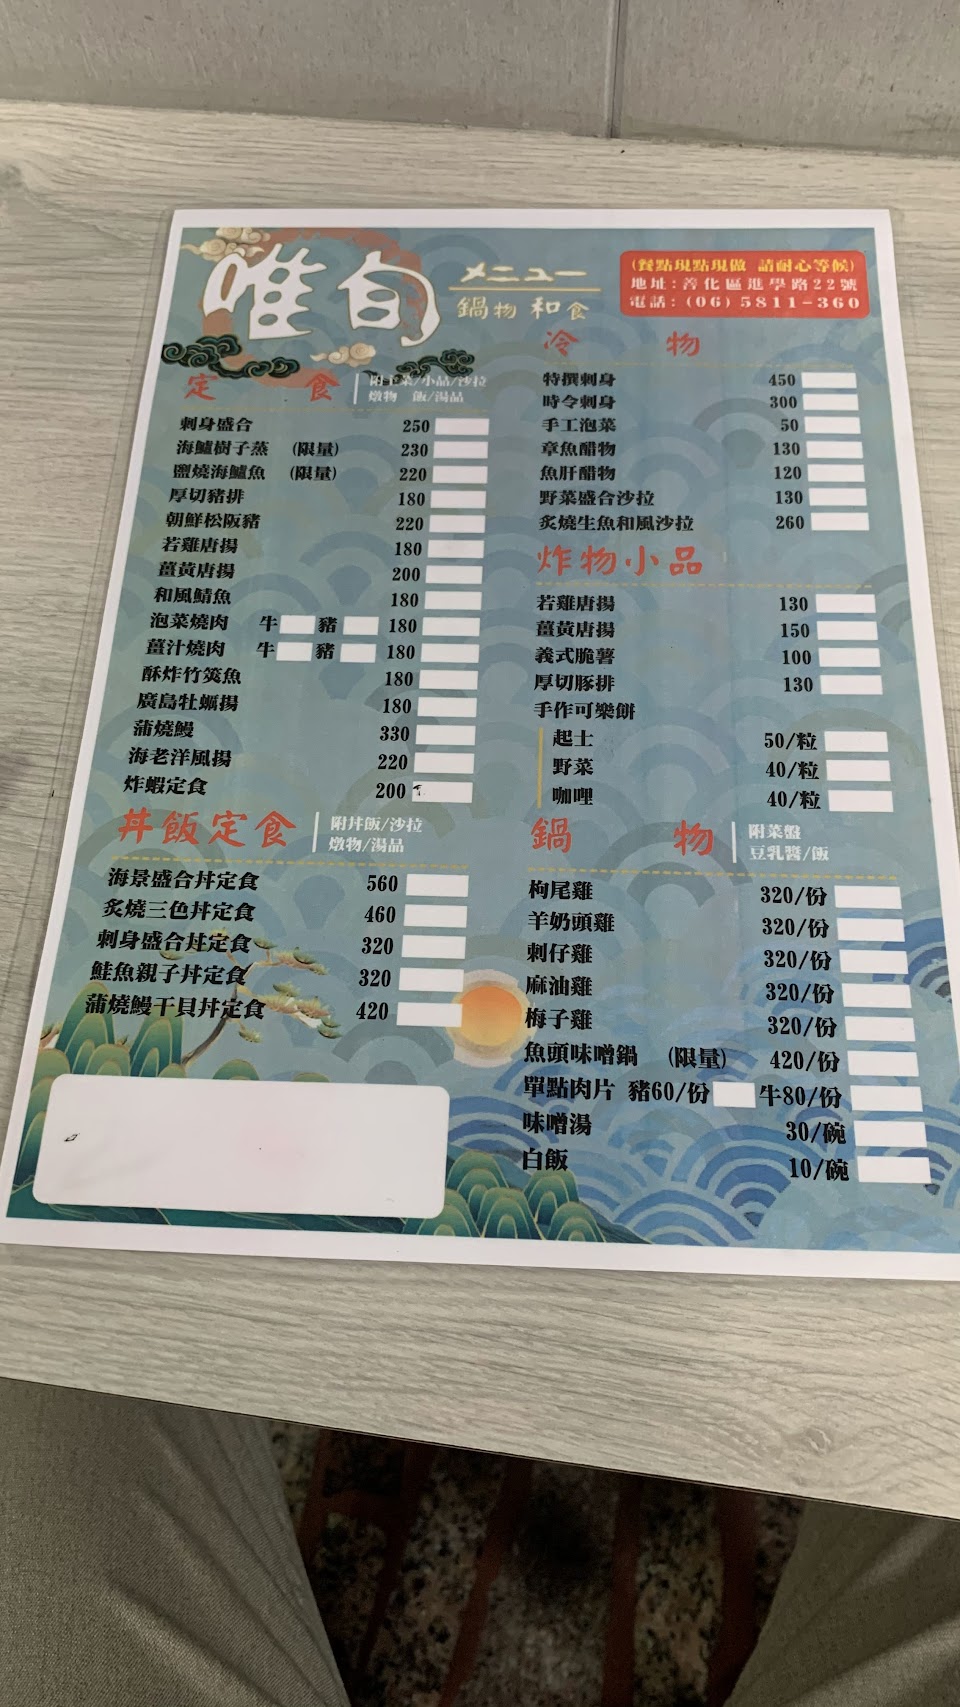 唯旬
メニュー
鍋物 和食
(餐點現點現做 請耐心等候)
地址:善化區進學路22號
電話:(06)5811-360
定食
附主菜/小品/沙拉
燉物 飯/湯品
刺身盛合 250
海鱸樹子蒸 (限量) 230
鹽燒海鱸魚 (限量) 220
厚切豬排 180
朝鮮松阪豬 220
若雞唐揚 180
薑黃唐揚 200
和風鯖魚 180
泡菜燒肉 牛 豬 180
薑汁燒肉 牛 豬 180
酥炸竹筴魚 180
廣島牡蠣揚 180
蒲燒鰻 330
海老洋風揚 220
炸蝦定食 200
丼飯定食
附丼飯/沙拉
燉物/湯品
海景盛合丼定食 560
炙燒三色丼定食 460
刺身盛合丼定食 320
鮭魚親子丼定食 320
蒲燒鰻干貝丼定食 420
冷物
特撰刺身 450
時令刺身 300
手工泡菜 50
章魚醋物 130
魚肝醋物 120
野菜盛合沙拉 130
炙燒生魚和風沙拉 260
炸物小品
若雞唐揚 130
薑黃唐揚 150
義式脆薯 100
厚切豚排 130
手作可樂餅
起士 50/粒
野菜 40/粒
咖哩 40/粒
鍋物
附菜盤
豆乳醬/飯
枸尾雞 320/份
羊奶頭雞 320/份
刺仔雞 320/份
麻油雞 320/份
梅子雞 320/份
魚頭味噌鍋 (限量) 420/份
單點肉片 豬60/份 牛80/份
味噌湯 30/碗
白飯 10/碗